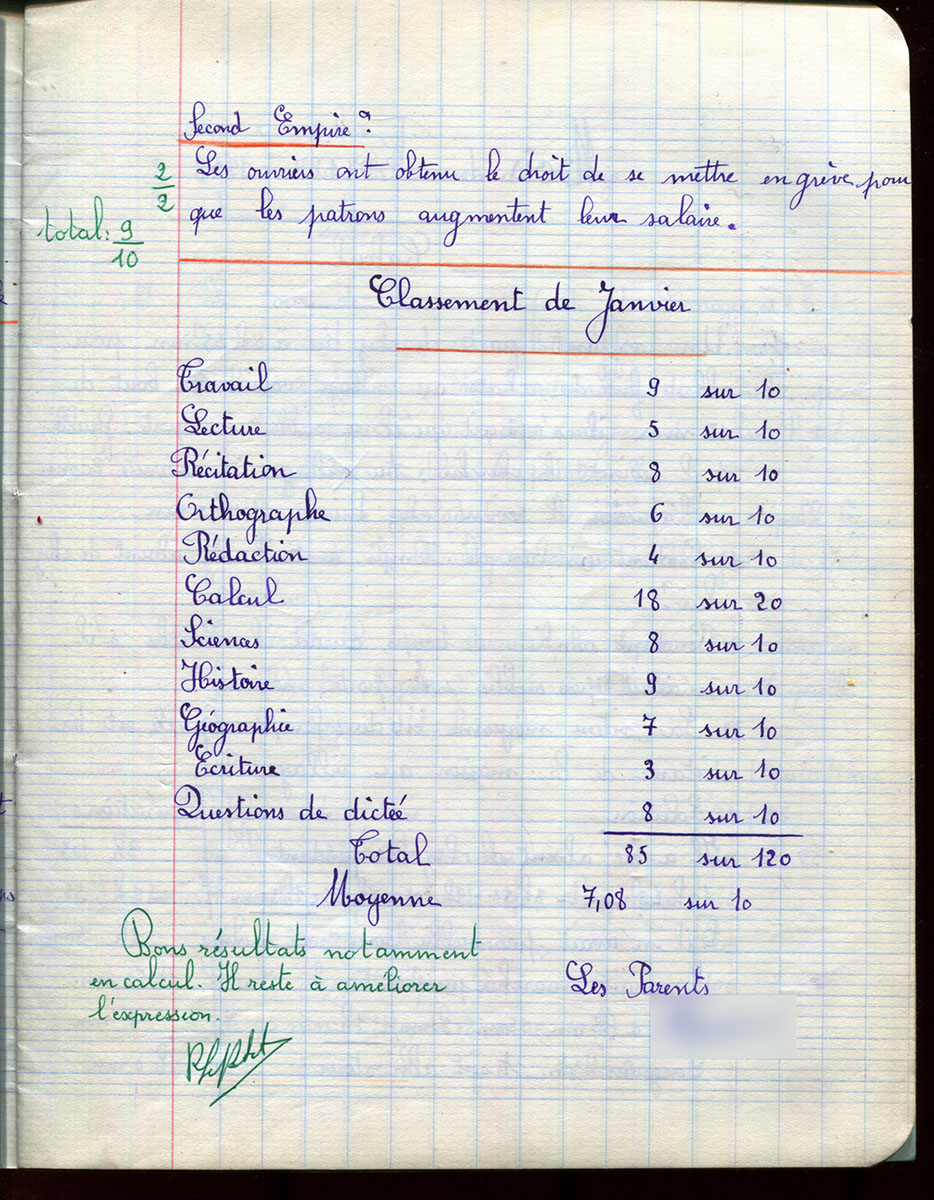 Second Empire ?
2/2
Les ouvriers ont obtenu le droit de se mettre en grève pour
que les patrons augmentent leur salaire.
total: 9/10
Classement de Janvier
Travail 9 sur 10
Lecture 5 sur 10
Récitation 8 sur 10
Orthographe 6 sur 10
Rédaction 4 sur 10
Calcul 18 sur 20
Sciences 8 sur 10
Histoire 9 sur 10
Géographie 7 sur 10
Ecriture 3 sur 10
Questions de dictéé 8 sur 10
Total 85 sur 120
Moyenne 7,08 sur 10
Bons résultats notamment
en calcul. Il reste à améliorer
l'expression.
Les Parents